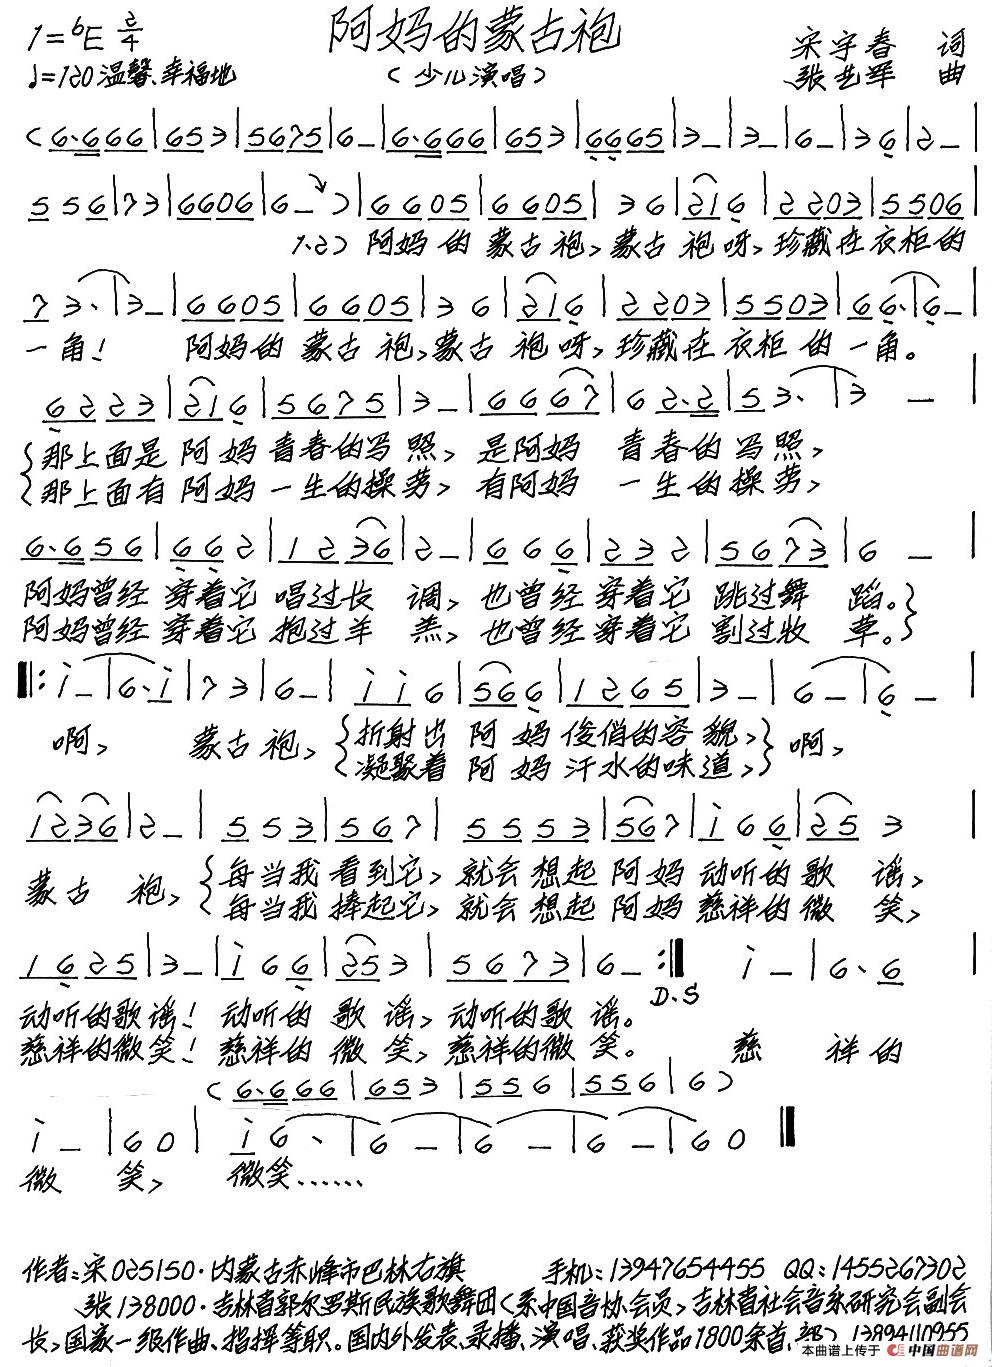 阿妈的蒙古袍
1=♭E 2/4
宋宇春 词
♩=120 温馨、幸福地
（少儿演唱）
张艺军 曲
(6·666|653|5675|6–|6·666|653|6665|3–|3–|6–|36|2–|
556|73|6606|6–)|6605|6605|36|216|2203|5506|
1.2) 阿妈的蒙古袍，蒙古袍呀，珍藏在衣柜的
73·|3–|6605|6605|36|216|2203|5503|66·|6–|
一角！ 阿妈的蒙古袍，蒙古袍呀，珍藏在衣柜的一角。
6223|216|5675|3–|6667|62·2|53·|3–|
那上面是阿妈青春的写照，是阿妈青春的写照，
那上面有阿妈一生的操劳，有阿妈一生的操劳，
6·656|662|1236|2–|666|232|5673|6–|
阿妈曾经穿着它唱过长调，也曾经穿着它跳过舞蹈。
阿妈曾经穿着它抱过羊羔，也曾经穿着它割过牧草。
‖:i–|6·i|73|6–|ii6|566|1265|3–|6–|6–|
啊， 蒙古袍， 折射出阿妈俊俏的容貌， 啊，
凝聚着阿妈汗水的味道，
1236|2–|553|567|5553|567|i66|253|
蒙古袍， 每当我看到它，就会想起阿妈动听的歌谣，
每当我捧起它，就会想起阿妈慈祥的微笑，
1625|3–|i66|253|5673|6–:‖ i–|6·6|
D.S
动听的歌谣！动听的歌谣，动听的歌谣。
慈祥的微笑！慈祥的微笑，慈祥的微笑。 慈祥的
(6·666|653|556|556|6)
i–|60|i6·|6–|6–|6–|60‖
微笑， 微笑……
作者：宋025150·内蒙古赤峰市巴林右旗 手机：13947654455 QQ：1455267302
张138000·吉林省郭尔罗斯民族歌舞团（系中国音协会员，吉林省社会音乐研究会副会
长，国家一级作曲、指挥等职。国内外发表、录播、演唱、获奖作品1800余首，部） 13894110955
本曲谱上传于 中国曲谱网